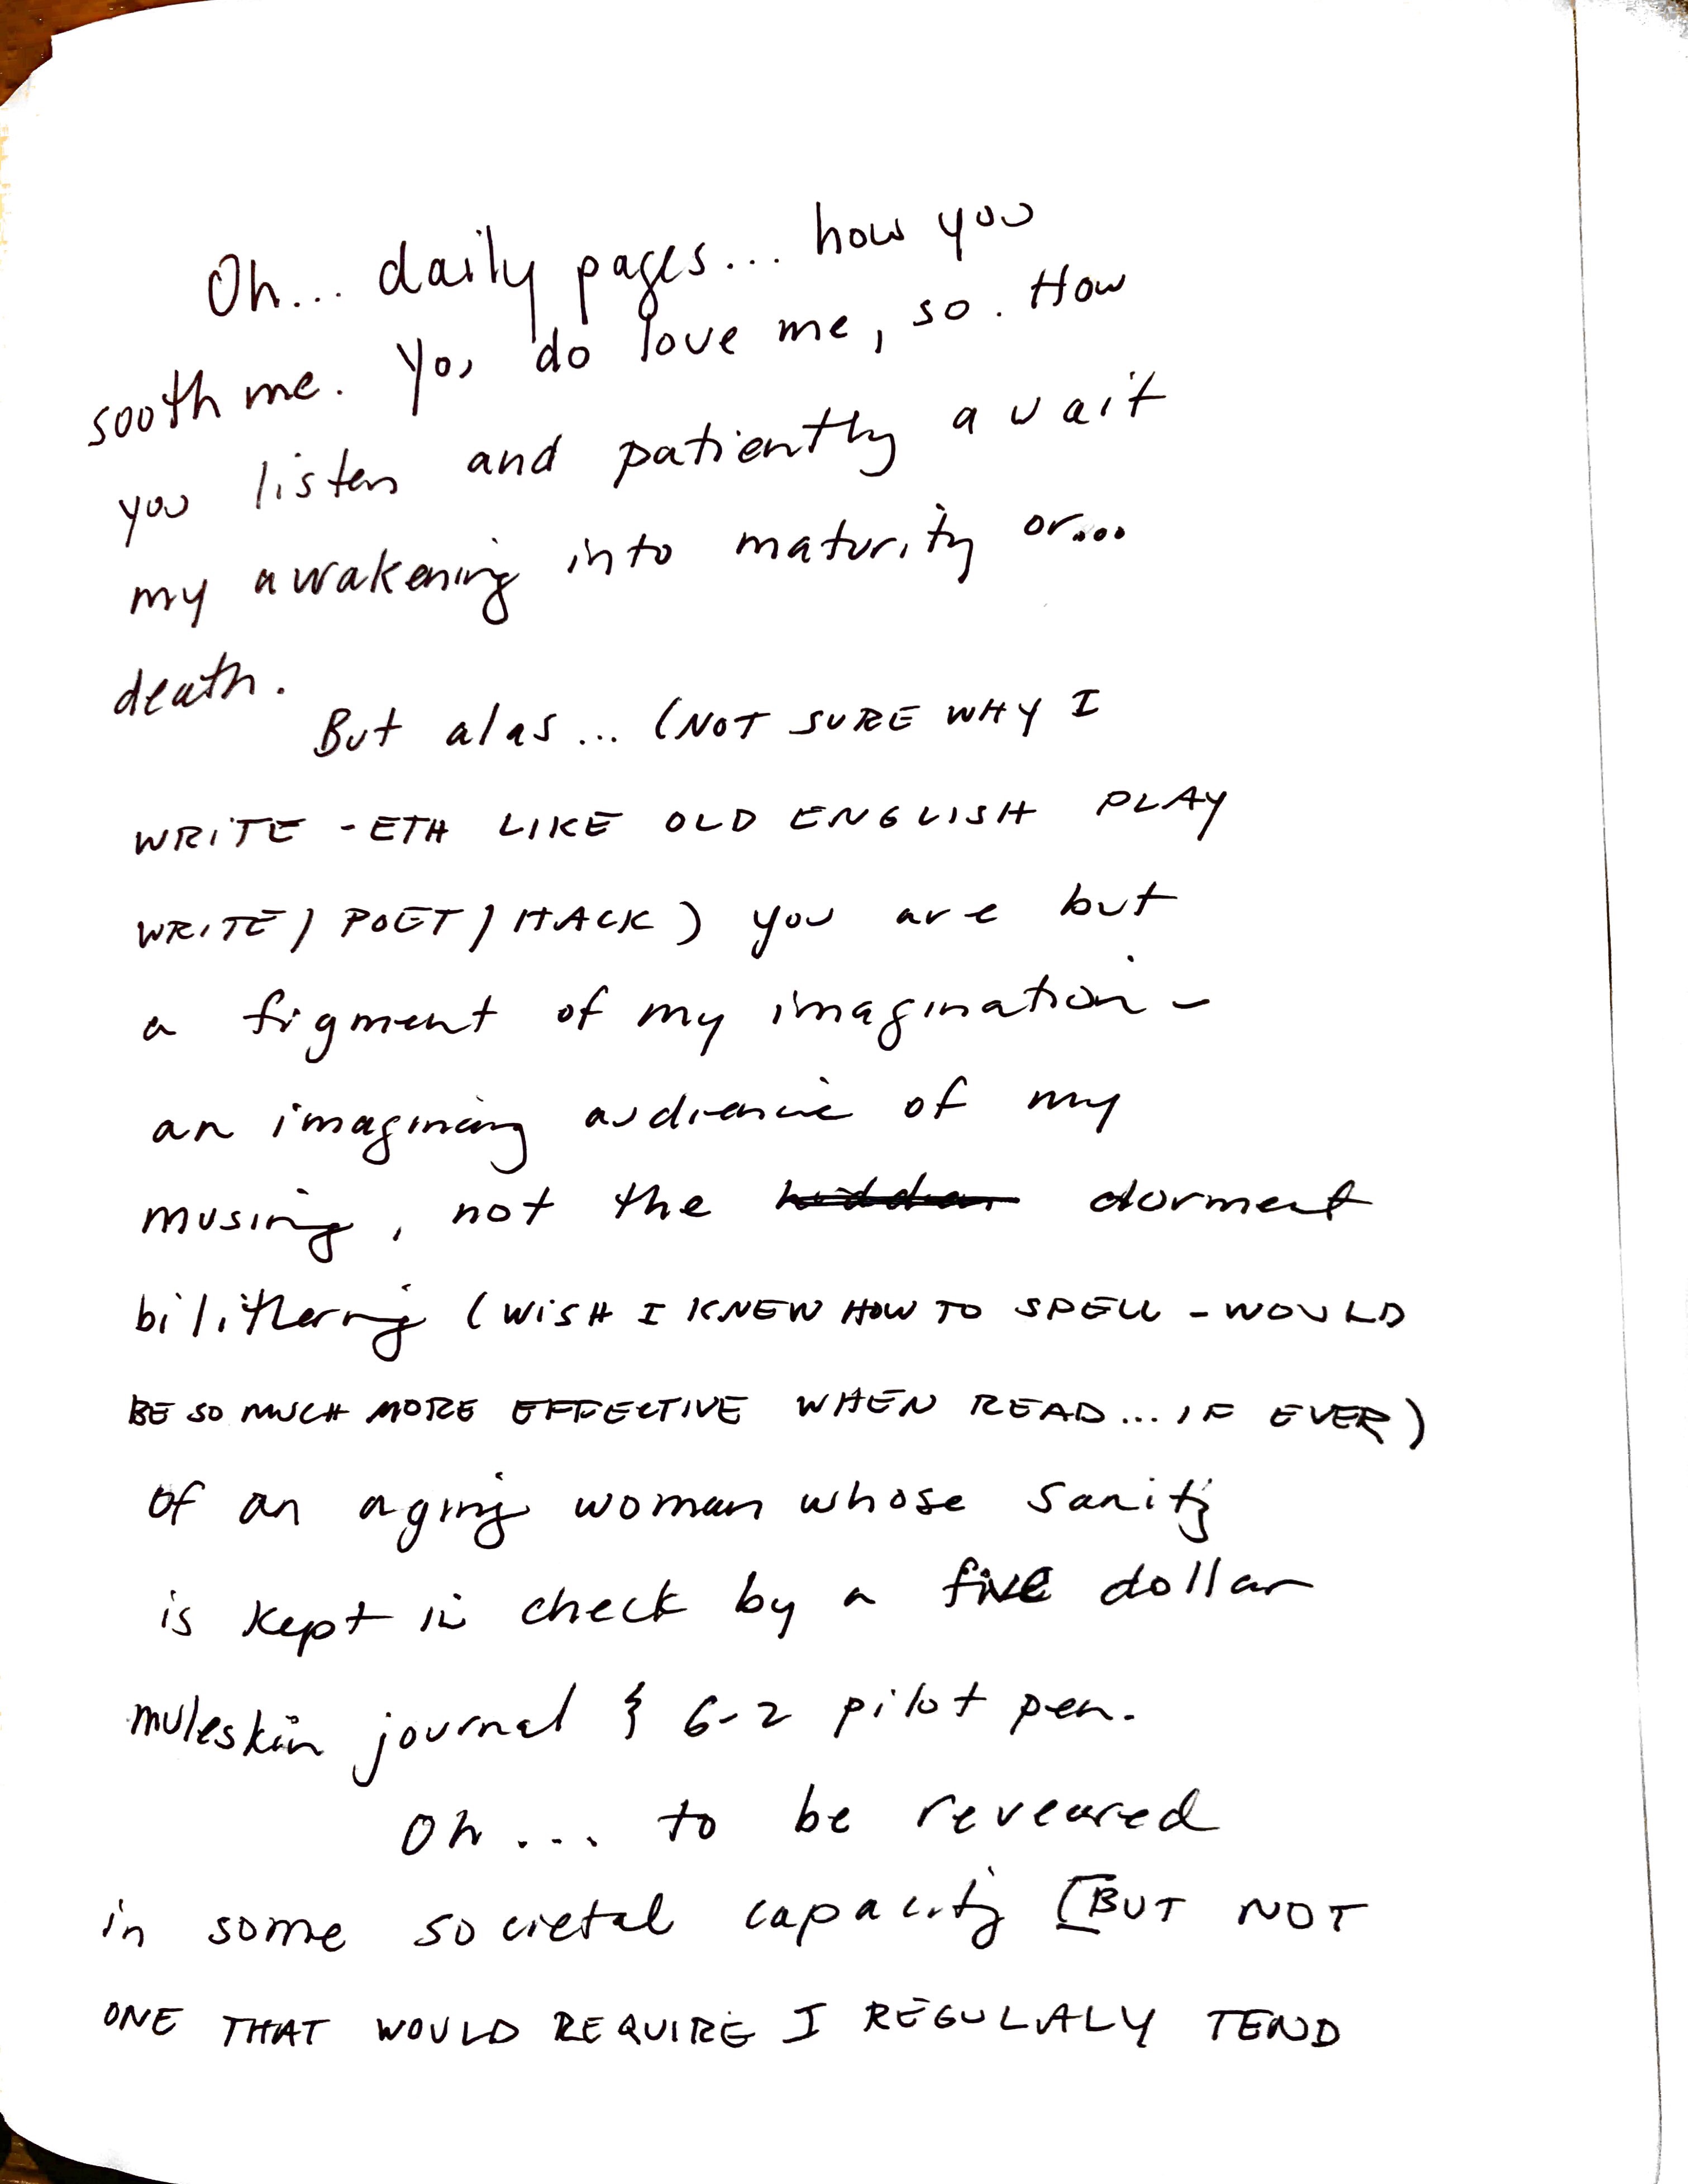 Oh... daily pages... how you
sooth me. You do love me, so. How
you listen and patiently await
my awakening into maturity or...
death.
But alas... (NOT SURE WHY I
WRITE-ETH LIKE OLD ENGLISH PLAY
WRITE/POET/HACK) you are but
a figment of my imagination -
an imagining audience of my
musing, not the dorment
bilithering (WISH I KNEW HOW TO SPELL - WOULD
BE SO MUCH MORE EFFECTIVE WHEN READ... IF EVER)
of an aging woman whose sanity
is kept in check by a five dollar
muleskin journal & G-2 pilot pen.
Oh... to be reveared
in some societal capacity (BUT NOT
ONE THAT WOULD REQUIRE I REGULALY TEND